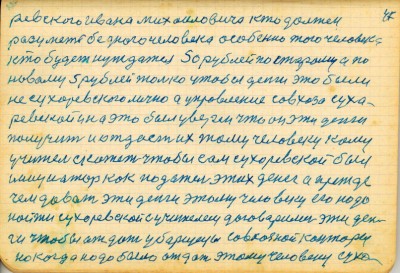 47
ревского ивана михайловича кто должен
разуметь бедного человека особенно того человека
кто будет нуждатся 50 рублей по старому а по
новому 5 рублей только чтобы денги это были
не сухоревского лично а управление совхоза суха-
ревской и на это был уверен что он эти денги
получит и отдаст их этому человеку кому
учител сочтет чтобы сам сухоревской был
инициатор как подател этих денег а прежде
чем давать эти денги этому человеку его надо
найти сухоревской с учителем договарилис эти ден-
ги чтобы отдат у барищы совхозной конторы
но когда надо было отдат этому человеку суха-